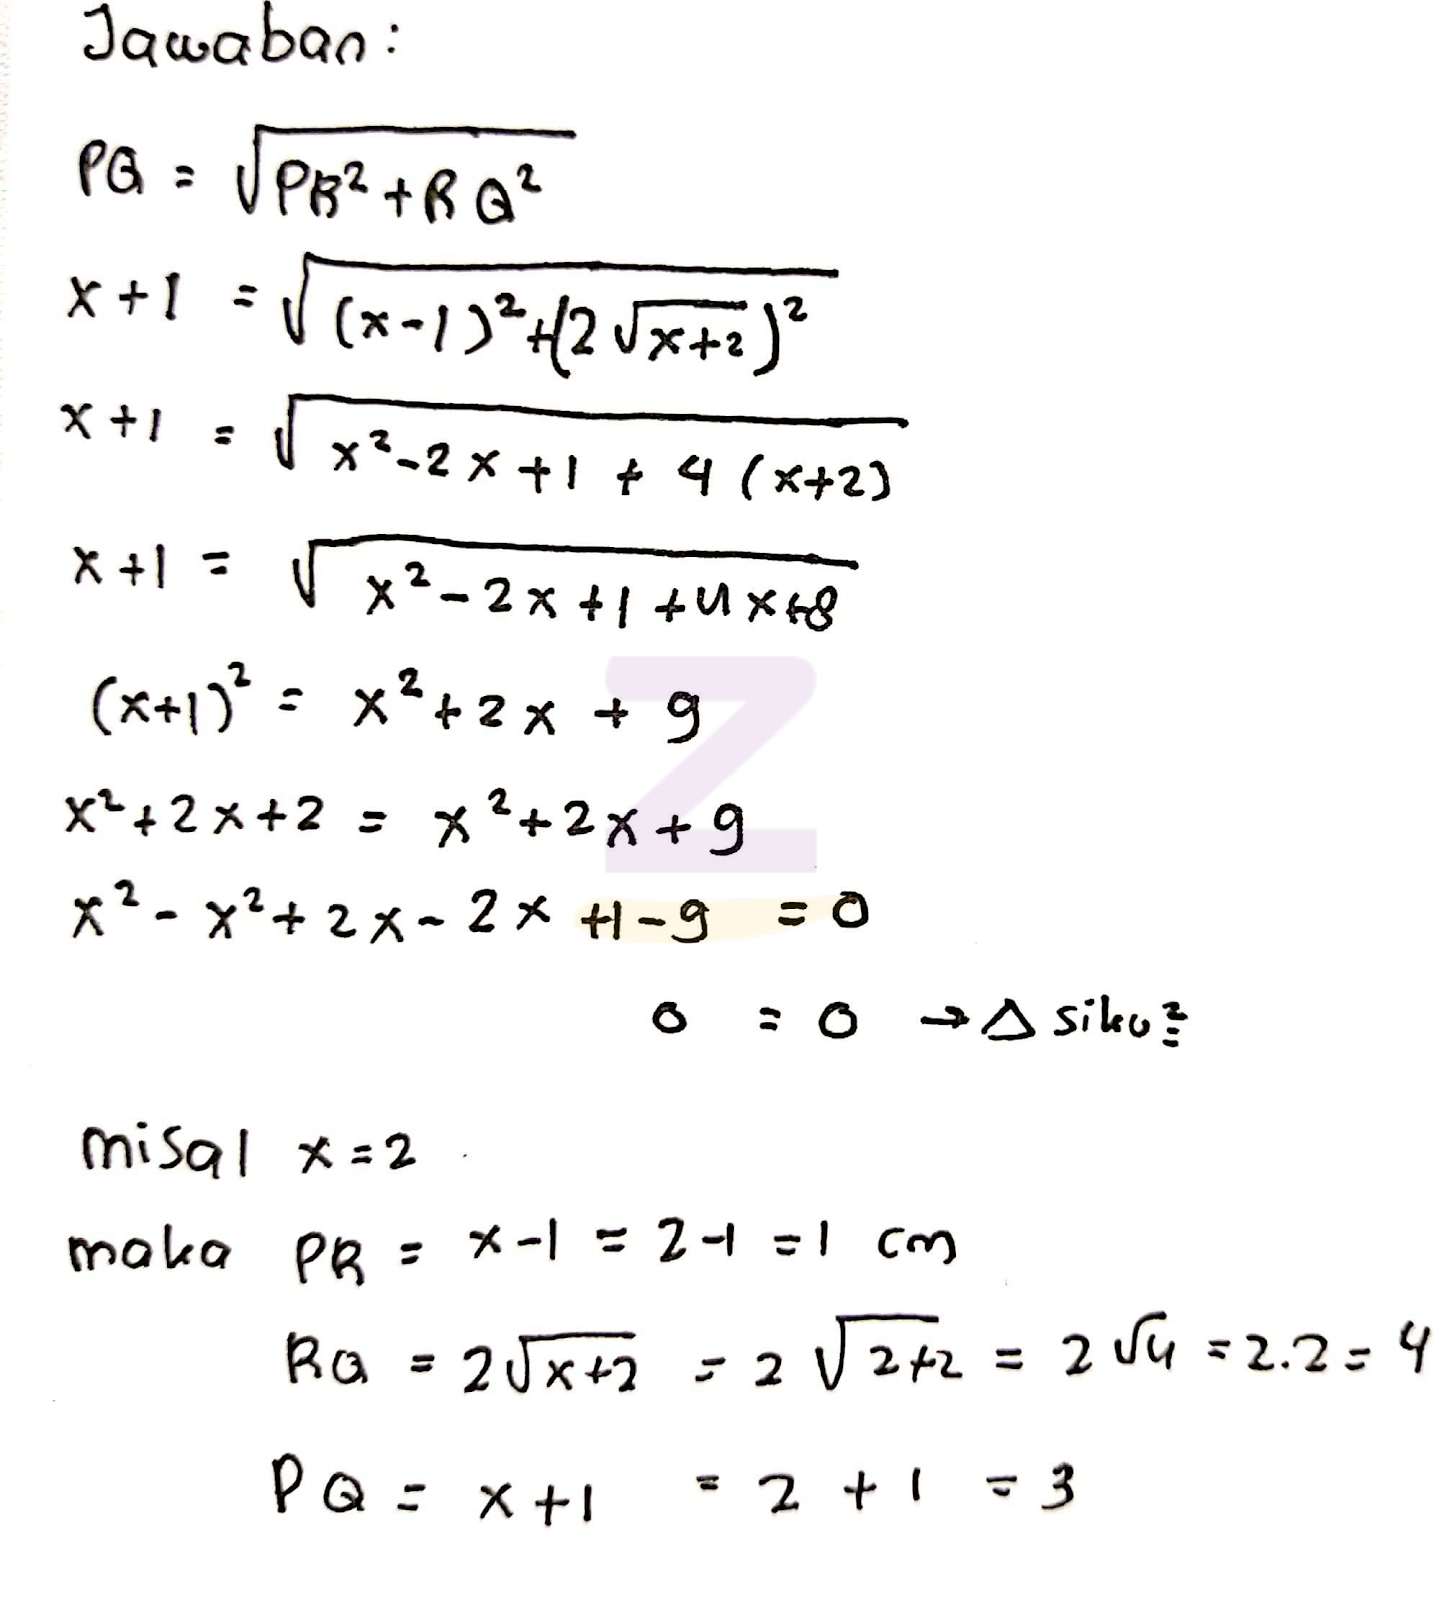 Jawaban:
PQ = √PR²+RQ²
x+1 = √(x-1)²+(2√x+2)²
x+1 = √x²-2x+1+4(x+2)
x+1 = √x²-2x+1+4x+8
(x+1)² = x²+2x+9
x²+2x+2 = x²+2x+9
x²-x²+2x-2x+1-9 = 0
0 = 0 → Δ siku²
misal x=2
maka PR = x-1 = 2-1 = 1 cm
RQ = 2√x+2 = 2√2+2 = 2√4 = 2.2 = 4
PQ = x+1 = 2+1 = 3
Z